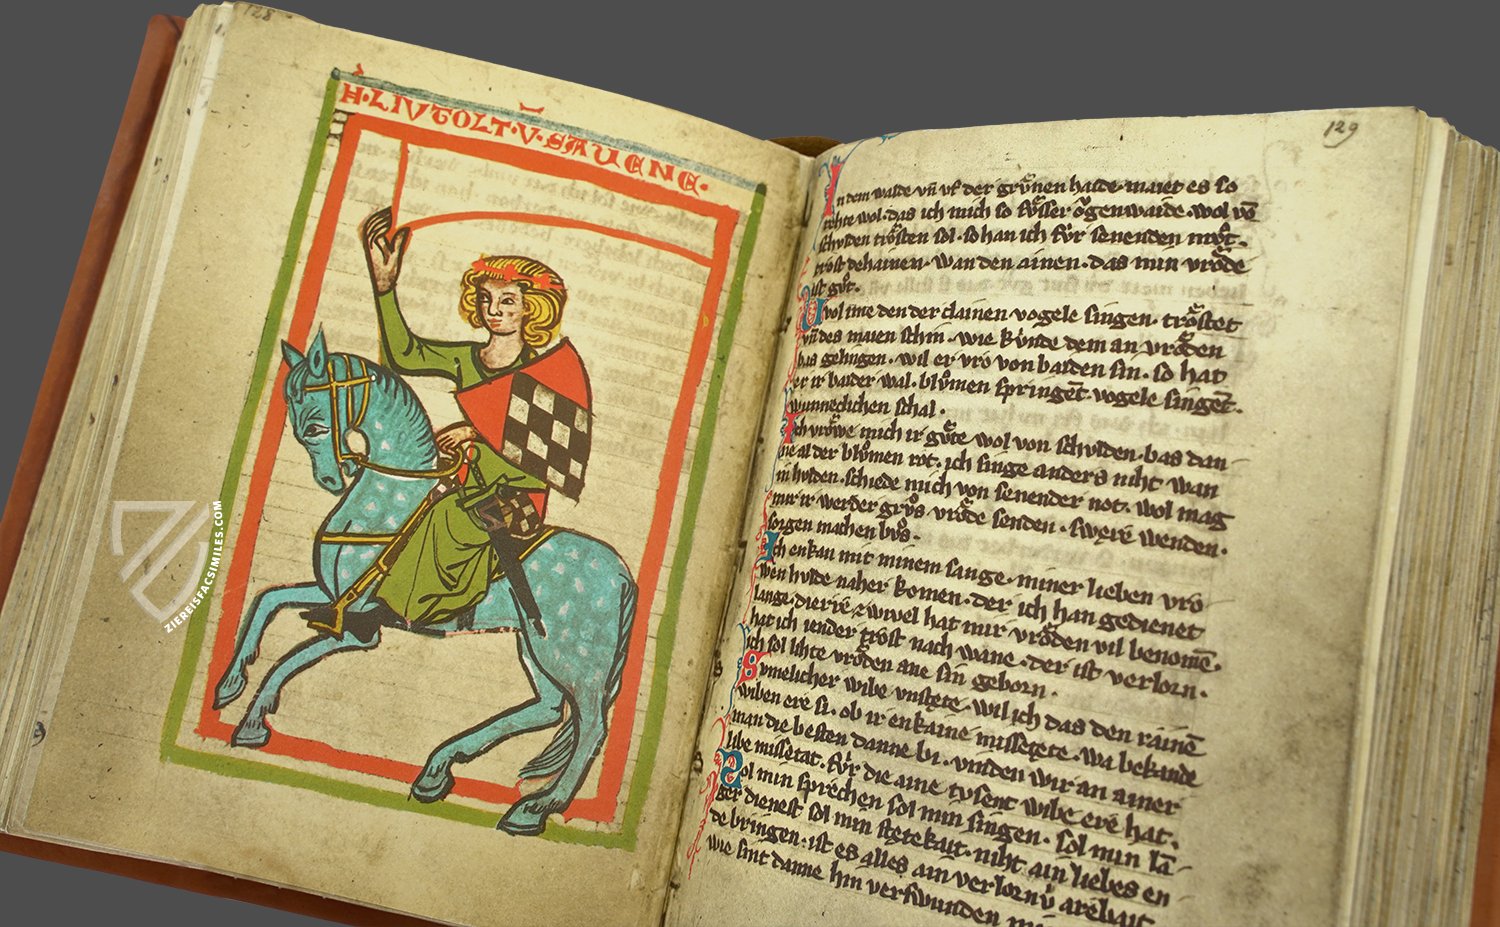 128
H·LIVTOLT·V·SAVENE·
ZIEREISFACSIMILES.COM
129
In dem walde vn̄ vf der grv̊nen haide· maiet es so
rehte wol· das ich mich so svͦsser oͮgenwaide· wol vō
schvlden troͤsten sol· so han ich fv́r senenden mv̊t·
trost dehainen· wan den ainen· das min vroͤde
ist gv̊t·
Wol ime den der clainen· vogele singen· troͤstet
vn̄ des maien schin· wie kv́nde dem an vroͤden
bas gelingen· wil er vro von baiden sin· so hat
er ir baider wal· blv̊men springēt· vogele singēt·
wunneclichen schal·
Ich vroͤwe mich ir gv̊te wol von schvlden· bas dan
ne al der blv̊men rot· ich singe anders niht wan
in hvlden· schiede mich von senender not· wol mag
mir ir werder grv̊s· vroͤde senden· swere wenden·
sorgen machen bv̊s·
Ich enkan mit minem sange· miner lieben vro
wen hvlde naher komen· der ich han gedienet
lange· die zwivel hat mir vroͤden vil benomē·
hat ich iender trost nach wane· der ist verlorn·
ich sol lihte vroͤden ane sin geborn·
Svmelicher wibe vnstete· wil ich das den rainē
wiben ere si· ob ir enkaine missetete· wa bekande
man die besten danne bi· vinden wir an ainer
libe missetat· fv́r die aine tvsent wibe ere hat·
Sol min sprechen sol min singen· sol min lā-
ger dienest sol min stetekait· niht ain liebes en
de bringen· ist es alles ain verlornv́ arebait
wie sint danne hin verswunden